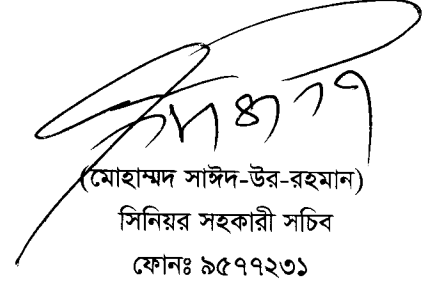 (মোহাম্মদ সাঈদ-উর-রহমান)
সিনিয়র সহকারী সচিব
ফোনঃ ৯৫৭৭২৩১